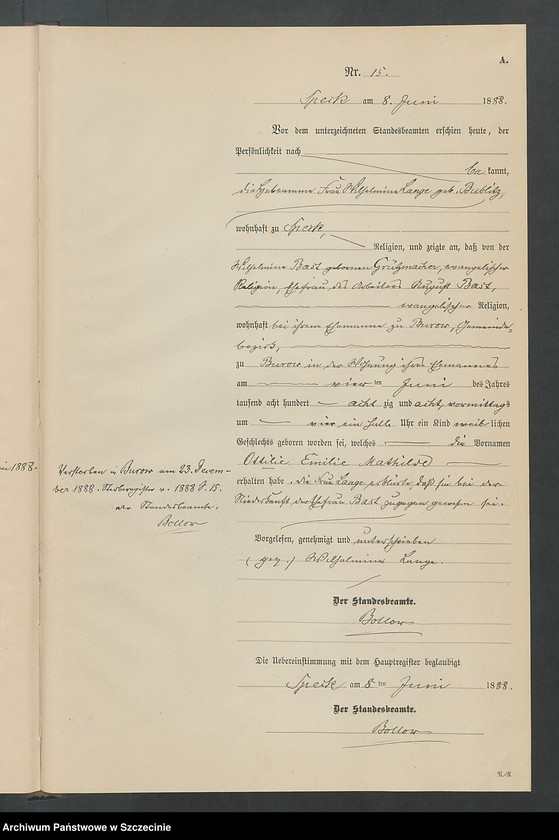 A.
Nr. 15.
Speck am 8. Juni 1888.
Vor dem unterzeichneten Standesbeamten erschien heute, der
Persönlichkeit nach
bekannt,
die Hebeamme Frau Wilhelmine Lange geb. Bublitz,
wohnhaft zu Speck,
Religion, und zeigte an, daß von der
Wilhelmine Bast geborenen Grützmacher, evangelischer
Religion, Ehefrau des Arbeiters August Bast,
evangelischer Religion,
wohnhaft bei ihrem Ehemanne zu Burow, Gemeinde-
bezirk,
zu Burow in der Wohnung ihres Ehemannes
am vier ten Juni des Jahres
tausend acht hundert acht zig und acht, vormittags
um vier ein halb Uhr ein Kind weib lichen
Geschlechts geboren worden sei, welches die Vornamen
Ottilie Emilie Mathilde
erhalten habe. Die Frau Lange erklärte, daß sie bei der
Niederkunft der Ehefrau Bast zugegen gewesen sei.
ni 1888.
Verstorben in Burow am 23. Dezem-
ber 1888. Sterberegister v. 1888 S. 15.
Der Standesbeamte.
Bollow
Vorgelesen, genehmigt und unterschrieben
(gez.) Wilhelmine Lange.
Der Standesbeamte.
Bollow
Die Uebereinstimmung mit dem Hauptregister beglaubigt
Speck am 8 ten Juni 1888.
Der Standesbeamte.
Bollow
Archiwum Państwowe w Szczecinie